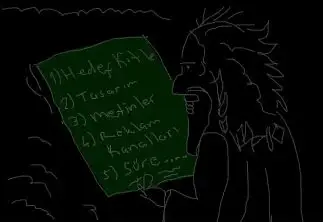 1) Hedef Kitle
2) Tasarım
3) Metinler
4) Reklam
Kanalları
5) Süre.....